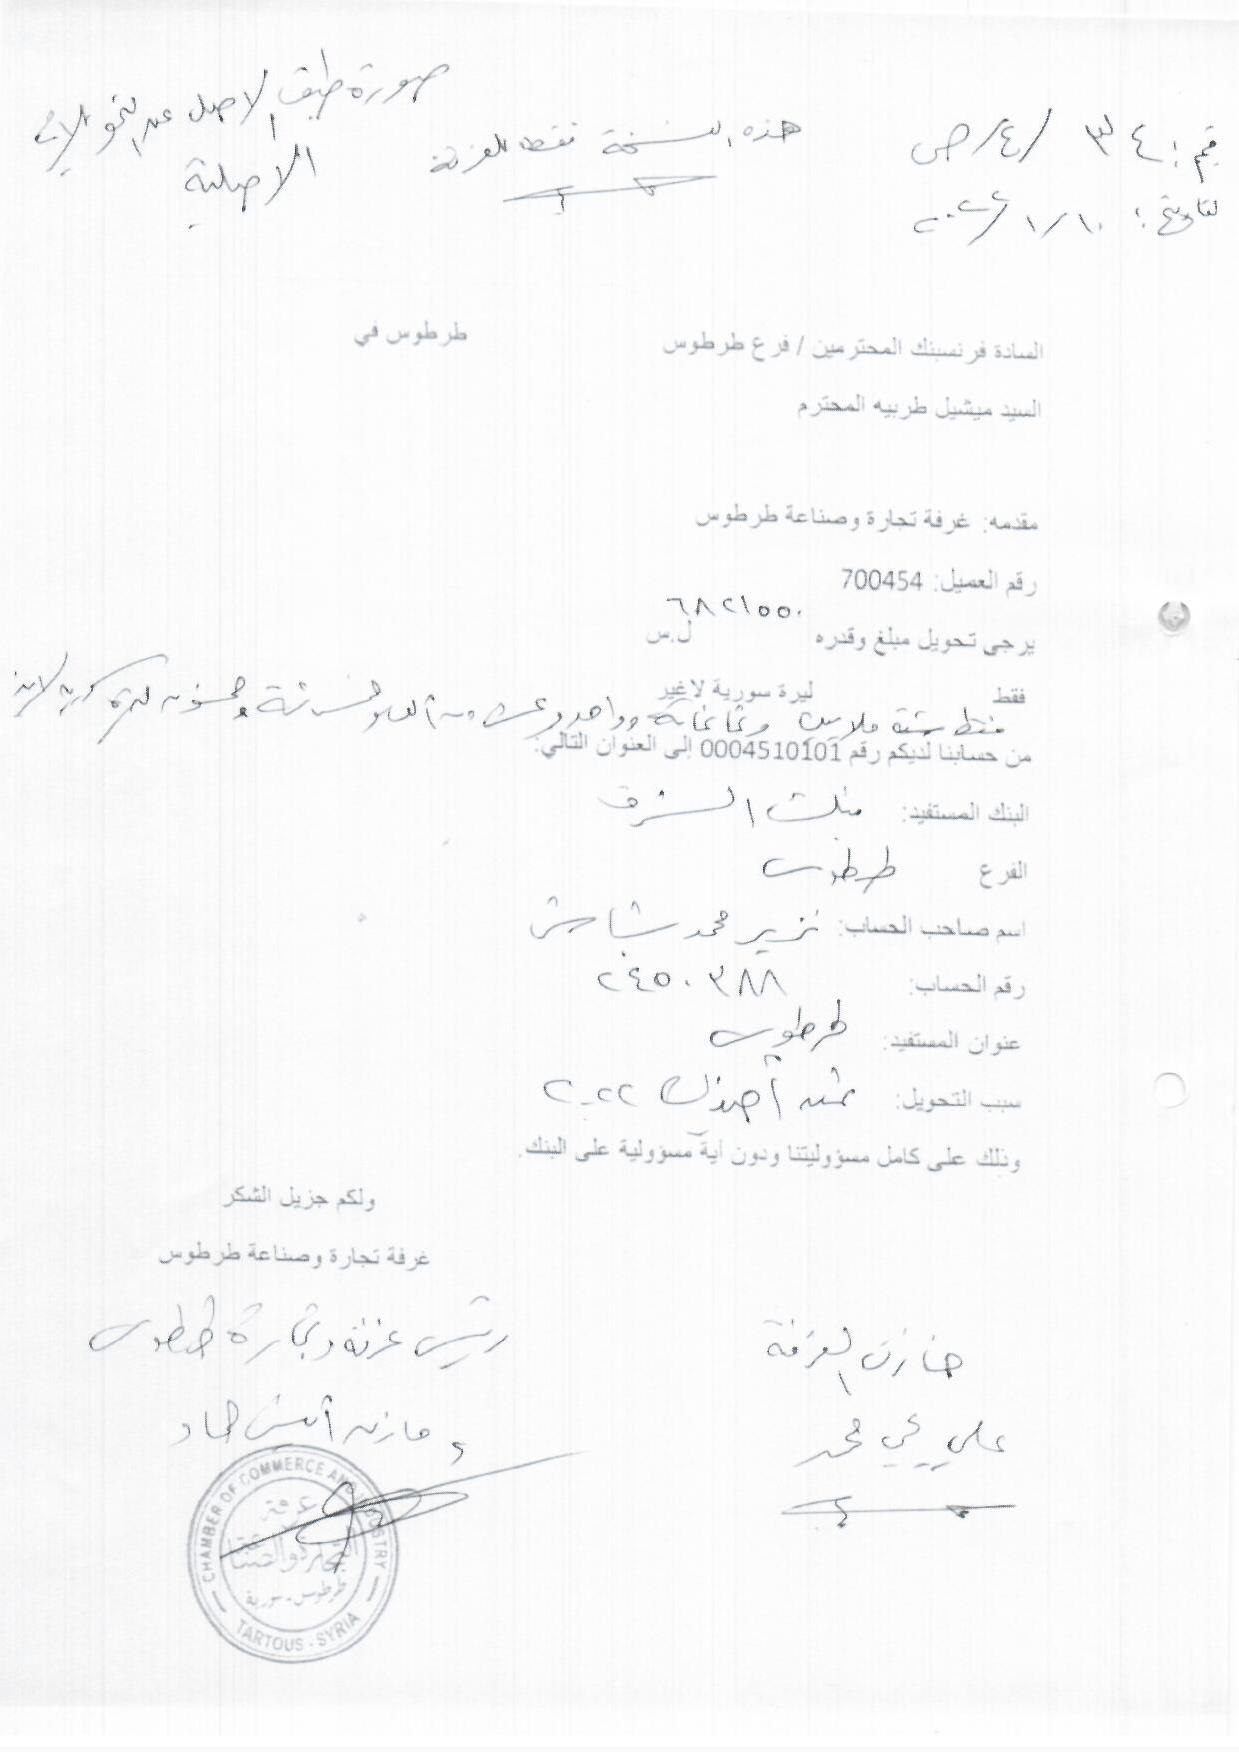 صورة طبق الاصل عن التحويلات
الاصلية
هذه النسخة فقط للغرفة
رقم: ٣٤ /٤/ص
تاريخ: ٢٠٢٢/١/١٠
السادة فرنسبنك المحترمين / فرع طرطوس
طرطوس في
السيد ميشيل طربيه المحترم
مقدمه: غرفة تجارة وصناعة طرطوس
رقم العميل: 700454
يرجى تحويل مبلغ وقدره ٦٨٢١٥٥٠ ل.س
فقط ليرة سورية لاغير
فقط ستة ملايين وثمانمائة وواحد وعشرون ألف وخمسمائة وخمسون ليرة سورية لاغير
من حسابنا لديكم رقم 0004510101 إلى العنوان التالي:
البنك المستفيد: بنك الشرق
الفرع طرطوس
اسم صاحب الحساب: محمد
رقم الحساب: ٢٤٥٠٣٨٨
عنوان المستفيد: طرطوس
سبب التحويل: ثمن ٢٠٢٢
وذلك على كامل مسؤوليتنا ودون أية مسؤولية على البنك.
ولكم جزيل الشكر
غرفة تجارة وصناعة طرطوس
خازن الغرفة
علي محمد
رئيس غرفة وتجارة طرطوس
مازن حماد
CHAMBER OF COMMERCE AND INDUSTRY
غرفة
التجارة والصناعة
طرطوس - سورية
TARTOUS - SYRIA